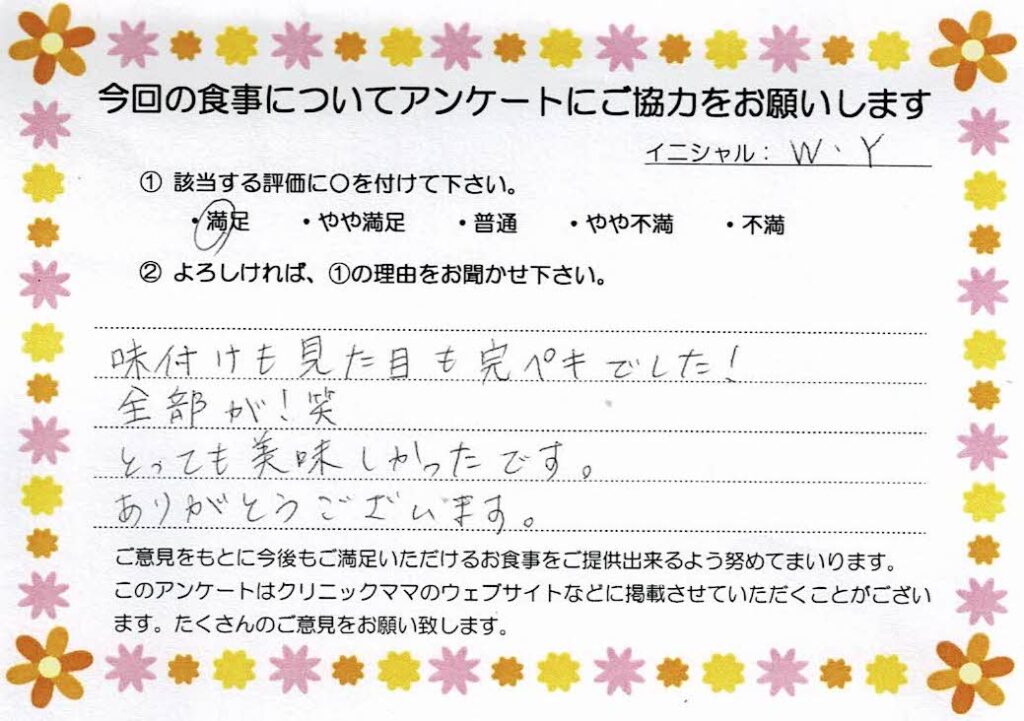 今回の食事についてアンケートにご協力をお願いします
イニシャル： W．Y
① 該当する評価に〇を付けて下さい。
・満足 ・やや満足 ・普通 ・やや不満 ・不満
② よろしければ、①の理由をお聞かせ下さい。
味付けも見た目も完ペキでした！
全部が！笑
とっても美味しかったです。
ありがとうございます。
ご意見をもとに今後もご満足いただけるお食事をご提供出来るよう努めてまいります。
このアンケートはクリニックママのウェブサイトなどに掲載させていただくことがござい
ます。たくさんのご意見をお願い致します。